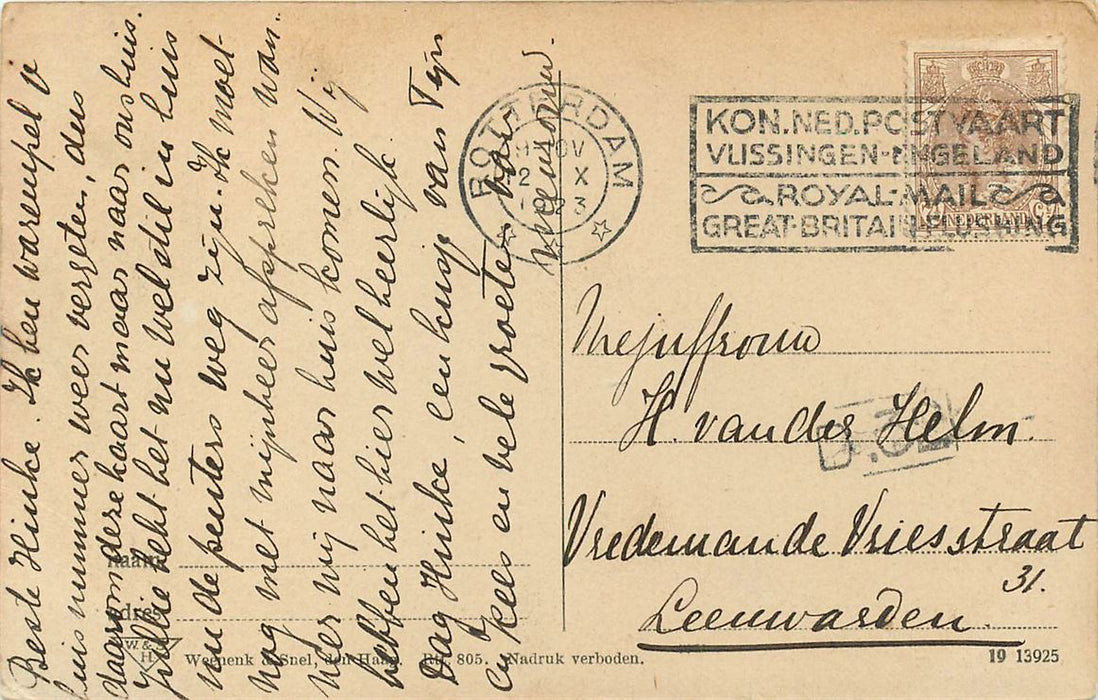 Beste Hinke. Ik ben warempel v
huis nummer weer vergeten, dus
daarom deze kaart maar naar ons huis.
Jullie hebt het nu wel stil in huis
nu de peuters weg zijn. Ik moet
nog met mijnheer afspreken wan-
neer wij naar huis komen. Wij
hebben het hier wel heerlijk.
Dag Hinke, een kusje van Tijn
en Kees en vele groeten van
mevrouw.
Naam
Adres
W. & S.
H.
Weenenk & Snel, den Haag. Rtf. 805. Nadruk verboden.
19 13925
ROTTERDAM
NOV
12 X
1923
KON. NED. POSTVAART
VLISSINGEN-ENGELAND
ROYAL-MAIL
GREAT-BRITAIN-FLUSHING
NEDERLAND
Mejuffrouw
H. van der Helm.
Vredeman de Vriesstraat
31.
Leeuwarden.